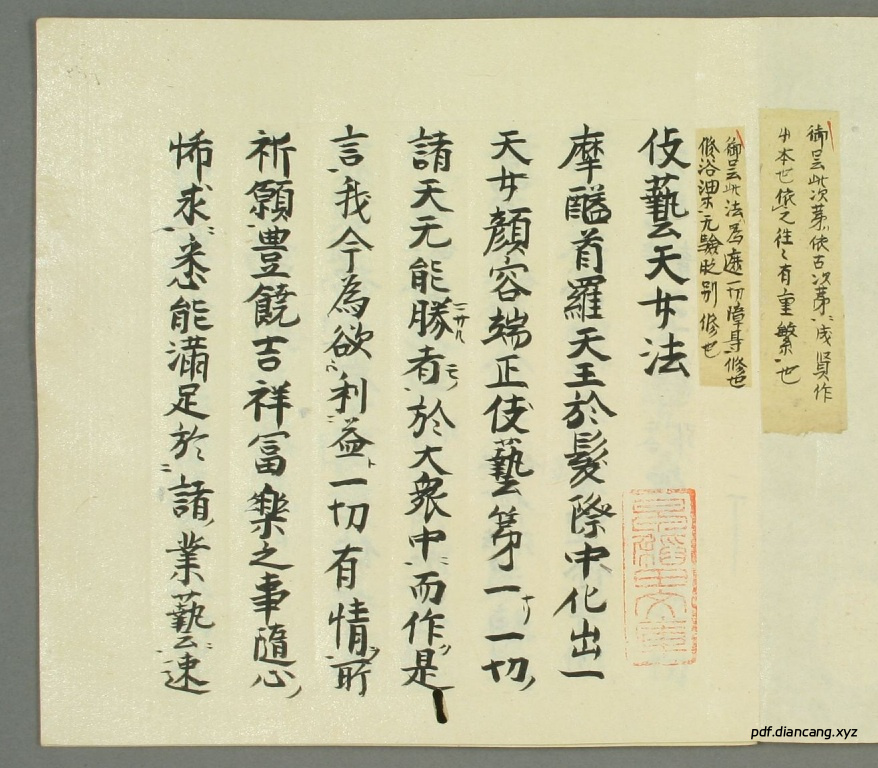 御云此次第依古次第成賢作
中本也依之往〻有重繁也
御云此法為遮一切障导修也
修浴油无驗時別修也
伎藝天女法
摩醯首羅天王於髮際中化出一
天女顏容端正伎藝第一一切
諸天元能勝者於大衆中而作是
言我今為欲利益一切有情所
祈願豊饒吉祥冨樂之事隨心
悕求悉能滿足於諸業藝速
pdf.diancang.xyz